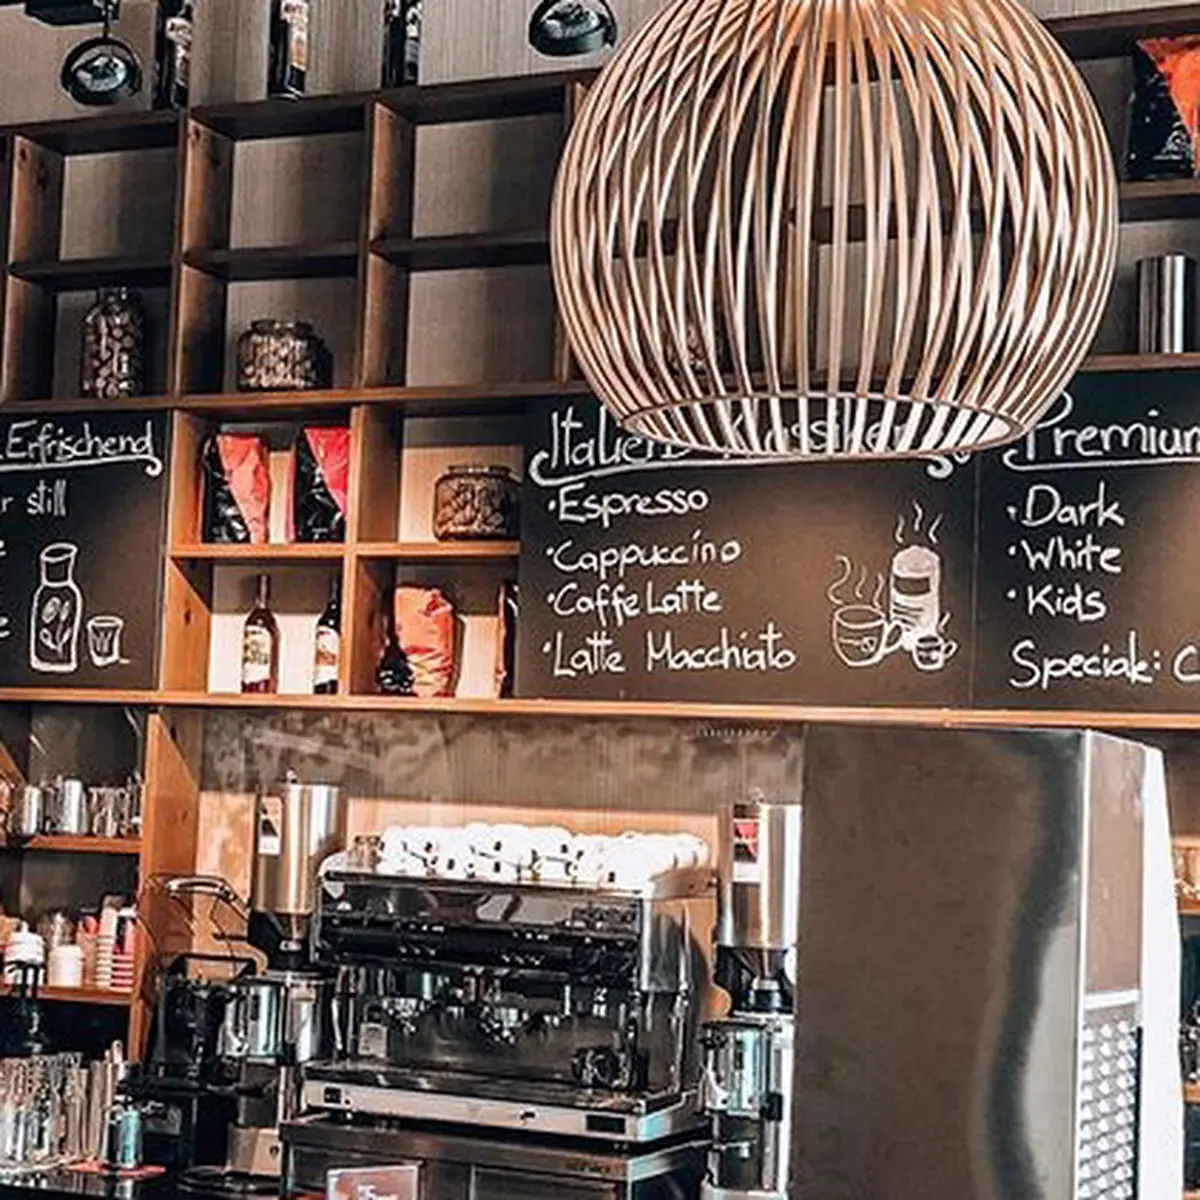 Erfrischend
still
Espresso
Cappuccino
Caffe Latte
Latte Macchiato
Premium
Dark
White
Kids
Speciale: